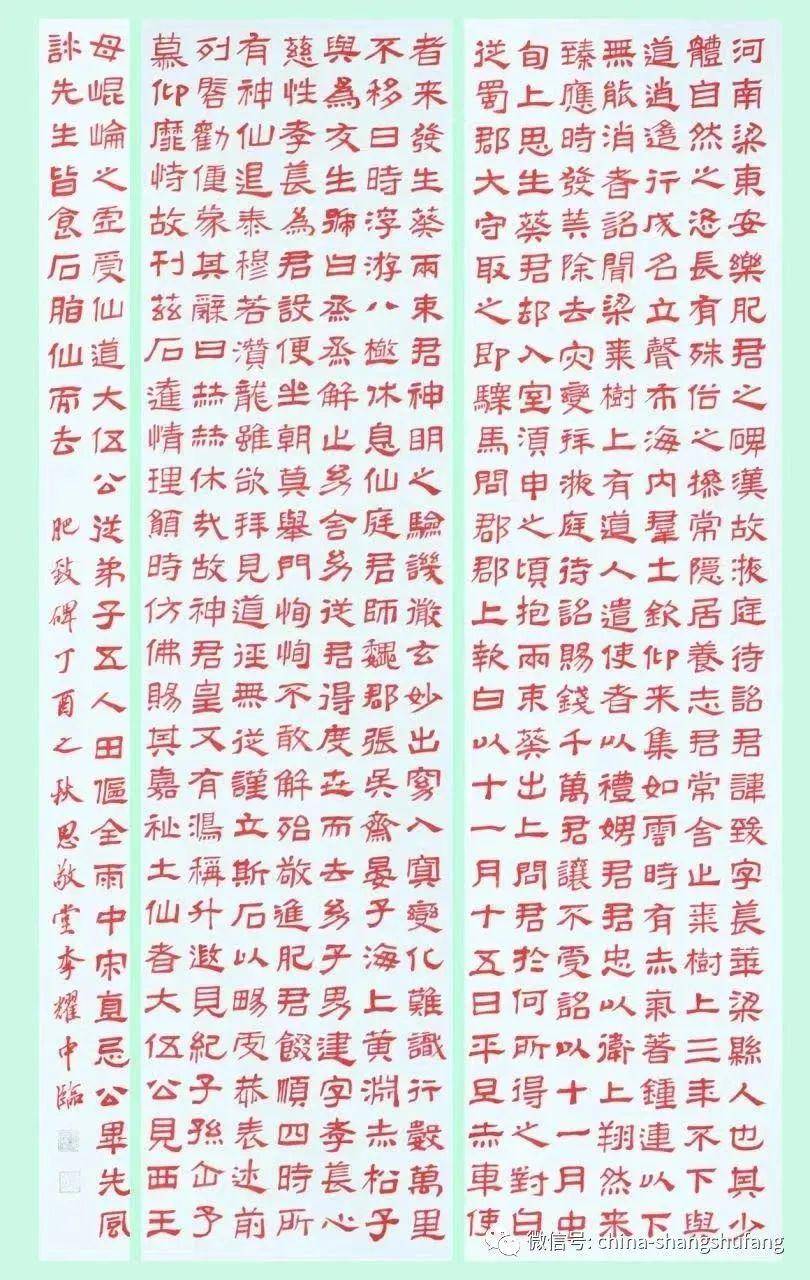 河南梁東安樂肥君之碑漢故掖庭待詔君諱致字萇華梁縣人也其少
體自然之恣長有殊俗之操常隱居養志君常舍止棗樹上三年不下與
道逍遙行成名立聲布海內羣士欽仰来集如雲時有赤氣著鍾連以下
無能消者詔聞梁棗樹上有道人遣使者以禮娉君君忠以衛上翔然来
臻應時發筭除去灾變拜掖庭待詔賜錢千萬君讓不受詔以十一月中
旬上思生葵君却入室須臾之頃抱兩束葵出上問君於何所得之對曰
從蜀郡大守取之即驛馬問郡郡上報曰以十一月十五日平旦赤車使
者来發生葵兩束君神明之驗譏徹玄妙出窈入冥變化難識行數萬里
不移日時浮游八極休息仙庭君師魏郡張吳齋晏子海上黃淵赤松子
與為友生號曰烝烝解止幼舍幼從君得度世而去幼子男建字孝萇心
慈性孝萇為君設便坐朝莫舉門恂恂不敢解殆敬進肥君餟順四時所
有神仙退泰穆若瀆龍雖欲拜見道徑無從謹立斯石以暢虔恭表述前
列啓勸僮蒙其辭曰赫赫休哉故神君皇又有鴻稱升遐見紀子孫企予
慕仰靡恃故刊茲石達情理願時仿佛賜其嘉祉土仙者大伍公見西王
母崐崘之虛受仙道大伍公從弟子五人田傴全雨中宋直忌公畢先風
許先生皆食石脂仙而去 肥致碑丁酉之秋思敬堂李耀中臨
微信号: china-shangshufang